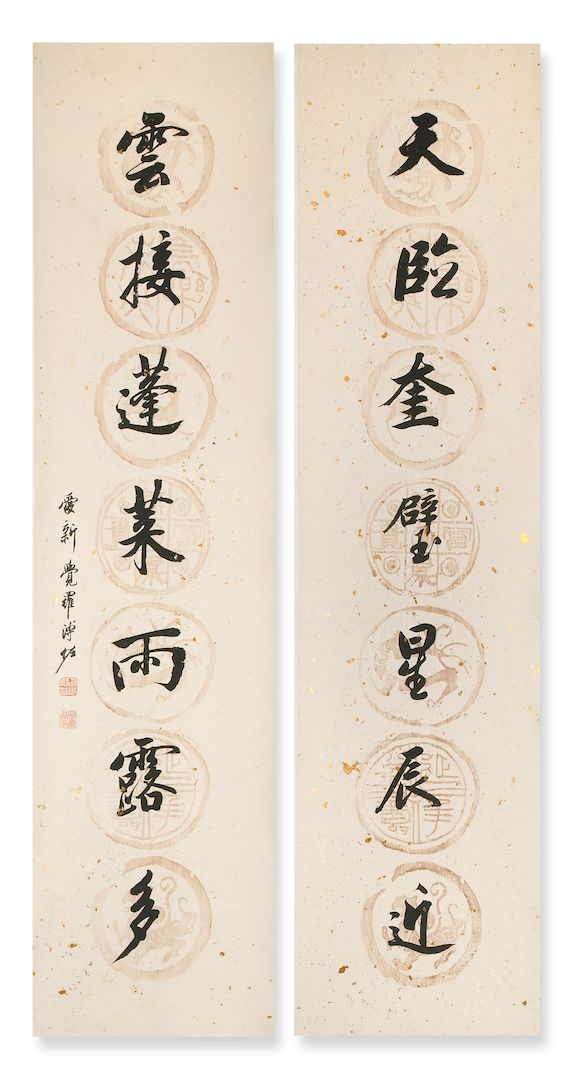 天臨奎璧星辰近
雲接蓬萊雨露多
愛新覺羅溥佐